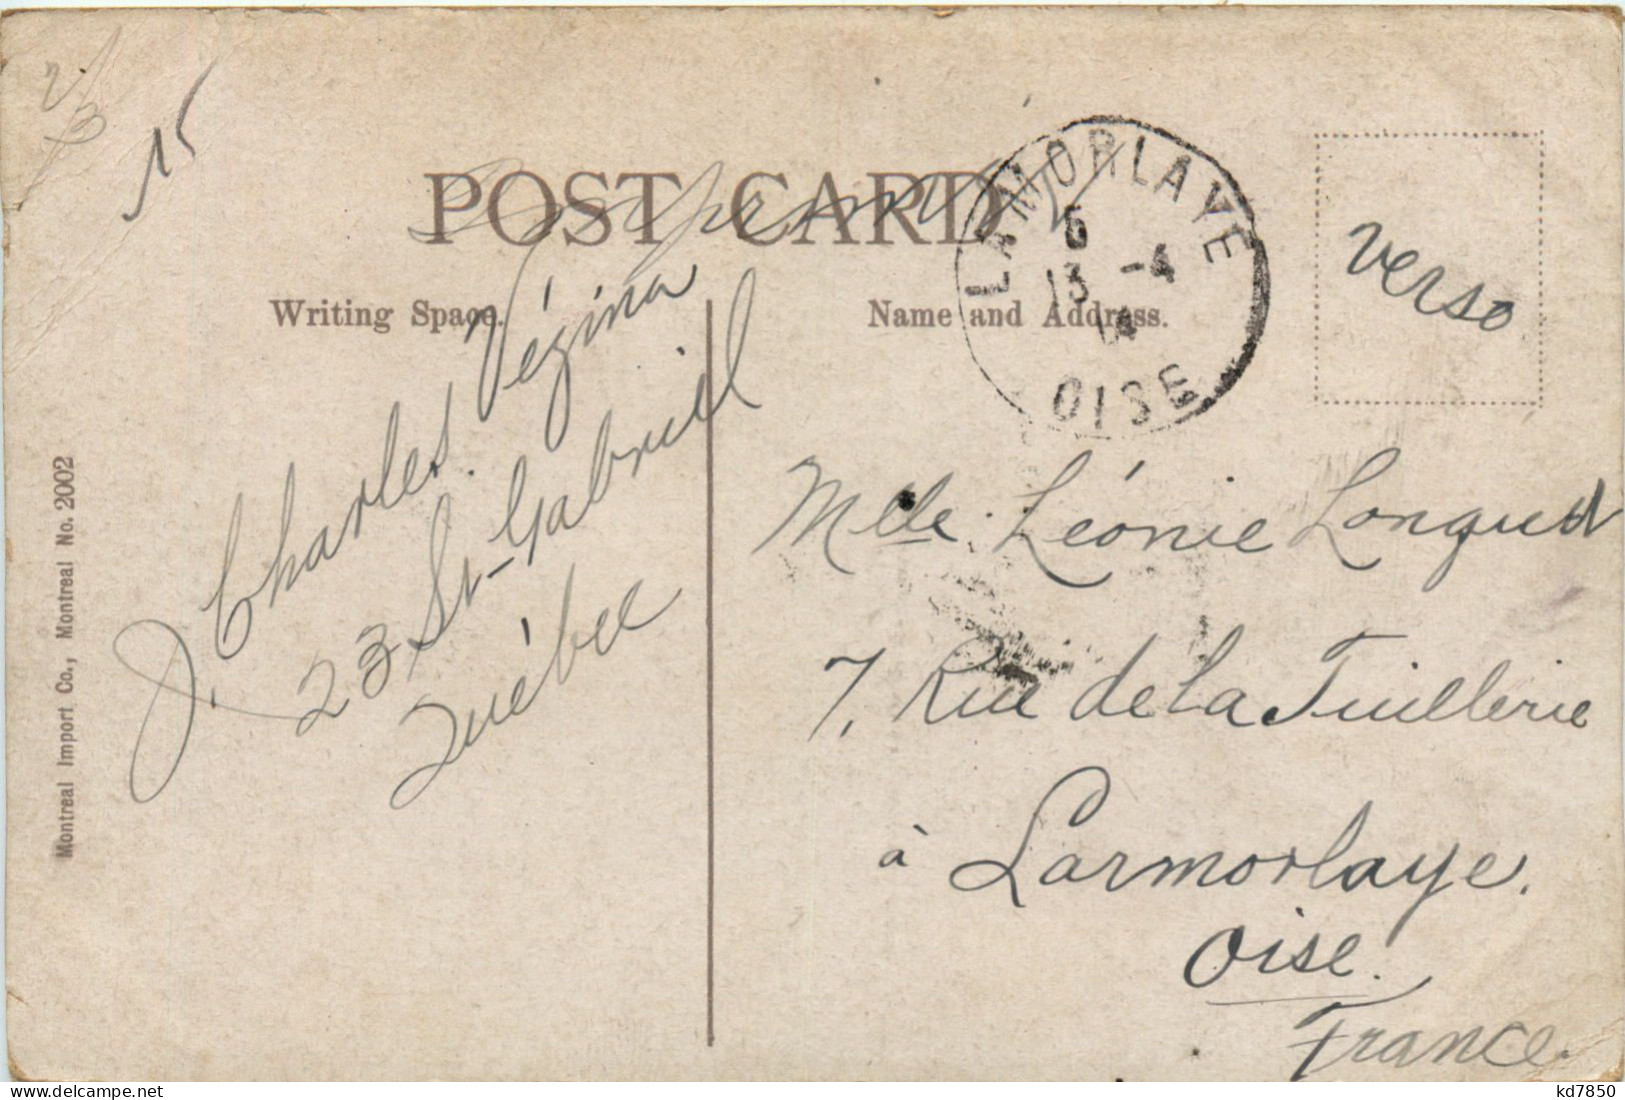 2
3
15
POST CARD
Writing Space.
J. Charles. Vézina
23 St-Gabriel
Québec
Montreal Import Co., Montreal No. 2002
Name and Address.
LAMORLAYE
6
13 -4
14
OISE
verso
Mlle. Léonie Longuet
7, Rue de la Tuillerie
à Larmorlaye.
Oise.
France.
kd7850
delcampe.net